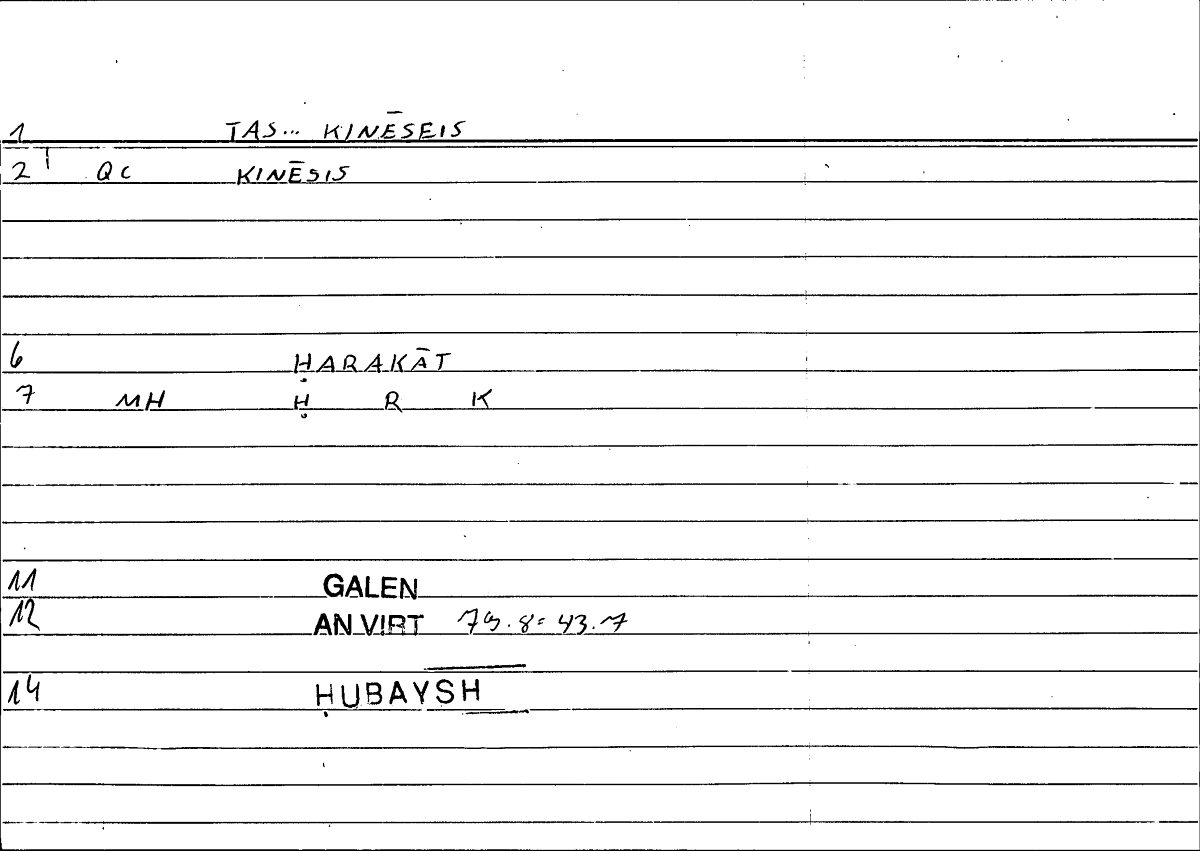 1 TAS... KINĒSEIS
2 QC KINĒSIS
6 ḤARAKĀT
7 MH Ḥ R K
11 GALEN
12 AN VIRT 79.8=43.7
14 ḤUBAYSH